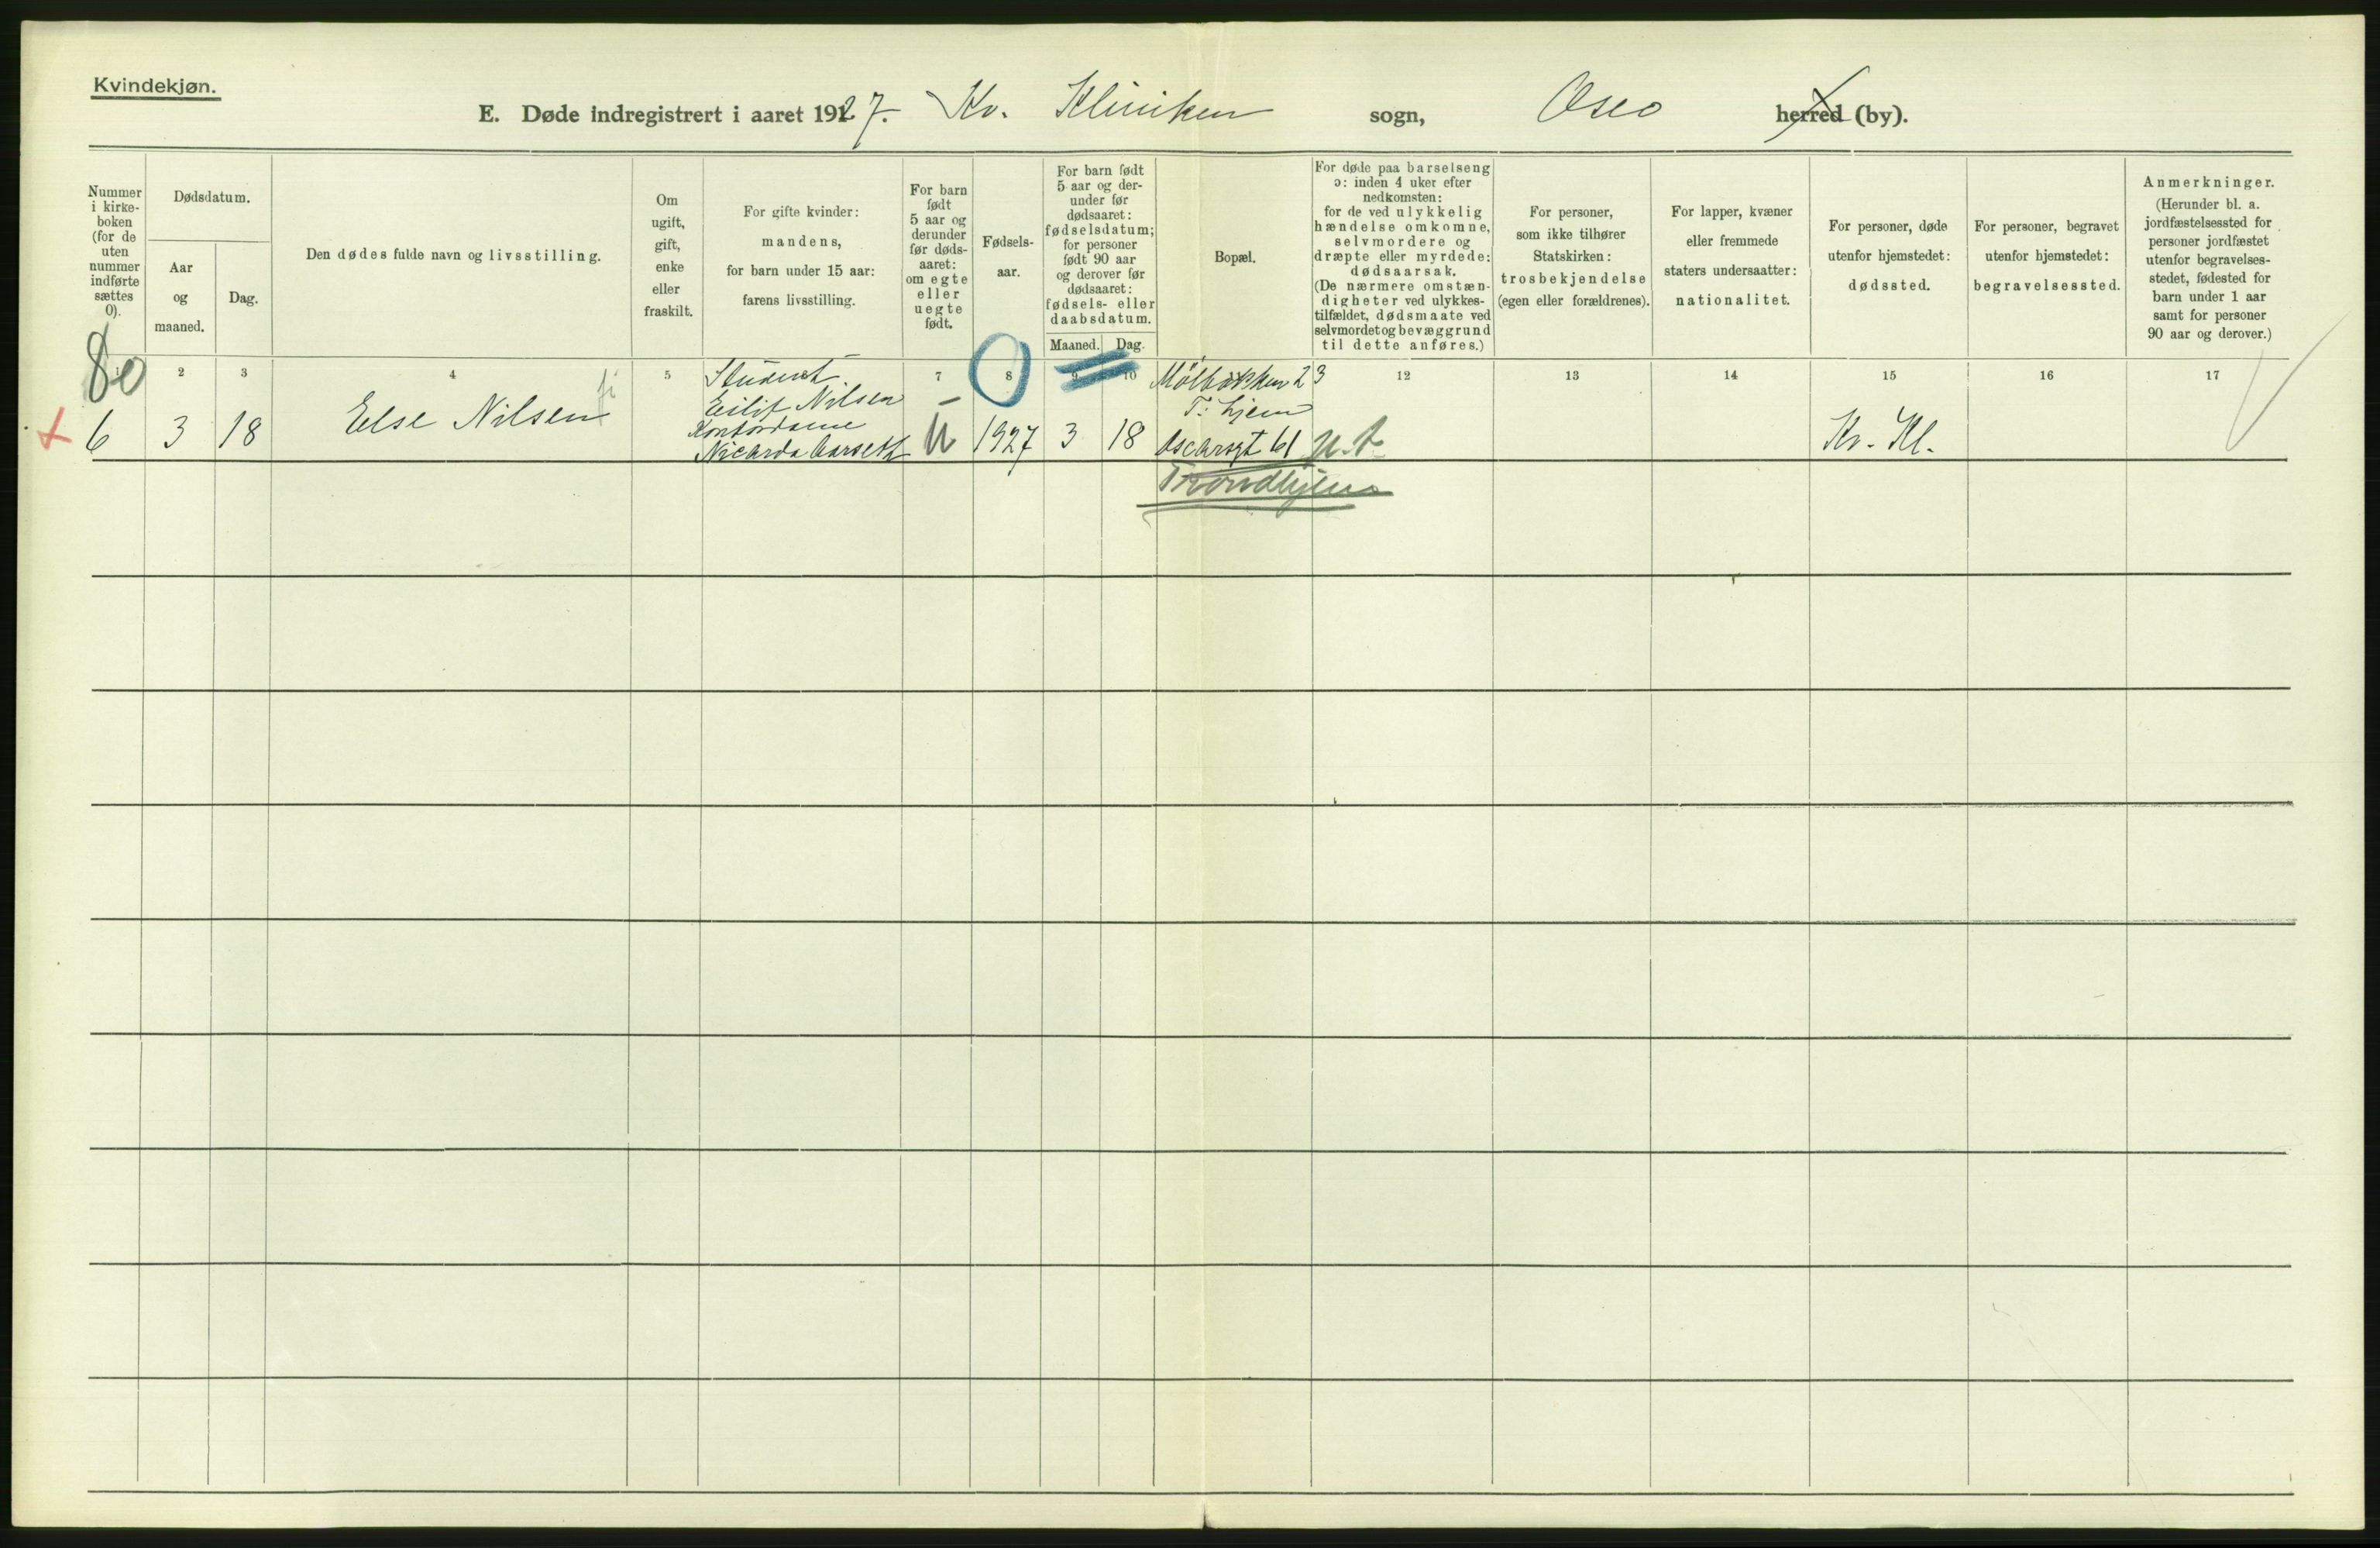 Kvindekjøn.
E. Døde indregistrert i aaret 1927. Kv. Kliniken sogn, Oslo herred (by).
Nummer
i kirke-
boken
(for de
uten
nummer
indførte
sættes
0).
Dødsdatum.
Aar
og
maaned.
Dag.
Den dødes fulde navn og livsstilling.
Om
ugift,
gift,
enke
eller
fraskilt.
For gifte kvinder:
mandens,
for barn under 15 aar:
farens livsstilling.
For barn
født
5 aar og
derunder
før døds-
aaret:
om egte
eller
uegte
født.
Fødsels-
aar.
For barn født
5 aar og der-
under før
dødsaaret:
fødselsdatum;
for personer
født 90 aar
og derover før
dødsaaret:
fødsels- eller
daabsdatum.
Maaned. Dag.
Bopæl.
For døde paa barselseng
ɔ: inden 4 uker efter
nedkomsten:
for de ved ulykkelig
hændelse omkomne,
selvmordere og
dræpte eller myrdede:
dødsaarsak.
(De nærmere omstæn-
digheter ved ulykkes-
tilfældet, dødsmaate ved
selvmordet og bevæggrund
til dette anføres.)
For personer,
som ikke tilhører
Statskirken:
trosbekjendelse
(egen eller forældrenes).
For lapper, kvæner
eller fremmede
staters undersaatter:
nationalitet.
For personer, døde
utenfor hjemstedet:
dødssted.
For personer, begravet
utenfor hjemstedet:
begravelsessted.
Anmerkninger.
(Herunder bl. a.
jordfæstelsessted for
personer jordfæstet
utenfor begravelses-
stedet, fødested for
barn under 1 aar
samt for personer
90 aar og derover.)
1 2 3 4 5 7 8 9 10 12 13 14 15 16 17
80
6 3 18 Else Nilsen
Student
Eilif Nilsen
Kontordame
Nicarda Aarseth
U 1927 3 18
Mølbakken 23
T.hjem
Oscarsgt 61
Trondhjem
Kv. Kl.